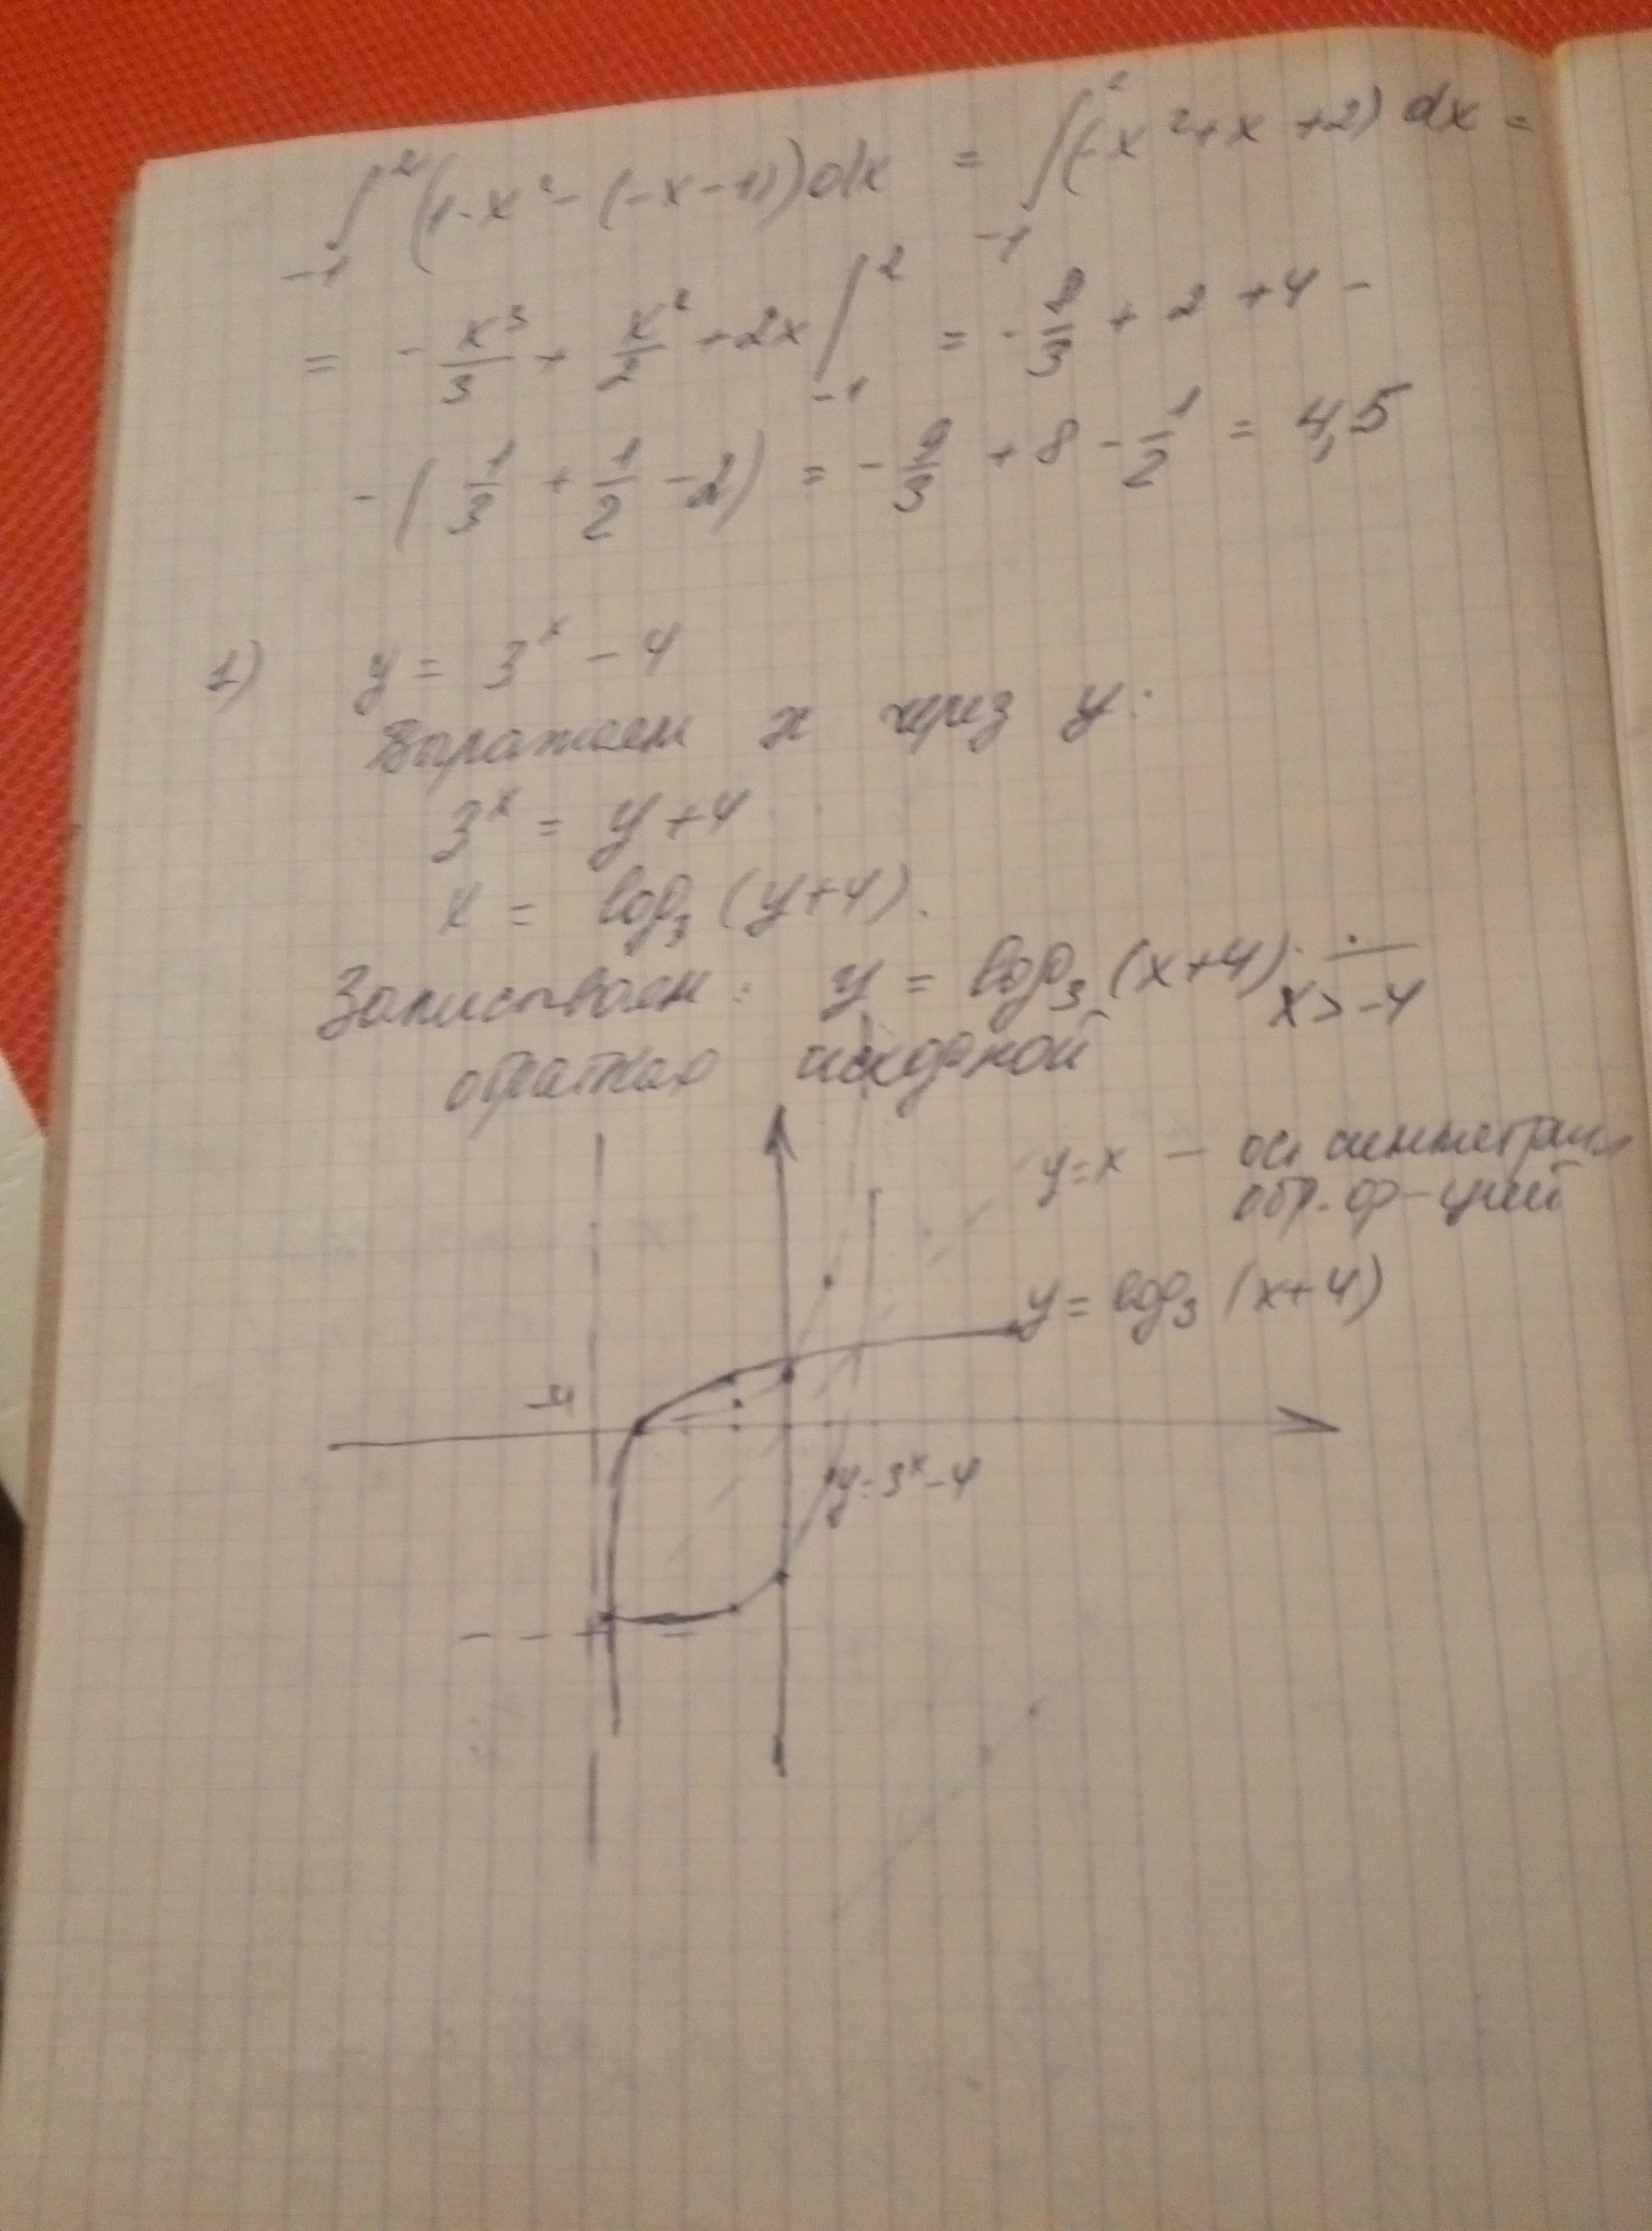 ∫₋₁² (1-x² - (-x-1))dx = ∫₋₁² (-x²+x+2) dx =
= - x³/3 + x²/2 + 2x |₋₁² = - 8/3 + 2 + 4 -
- (1/3 + 1/2 - 2) = - 9/3 + 8 - 1/2 = 4,5
1) y = 3ˣ - 4
Выражаем x через y:
3ˣ = y + 4
x = log₃ (y+4).
Записываем: y = log₃ (x+4)
x > -4
обратная исходной
y=x — ось симметрии
обр. ф-ций
y = log₃ (x+4)
-4
y=3ˣ-4